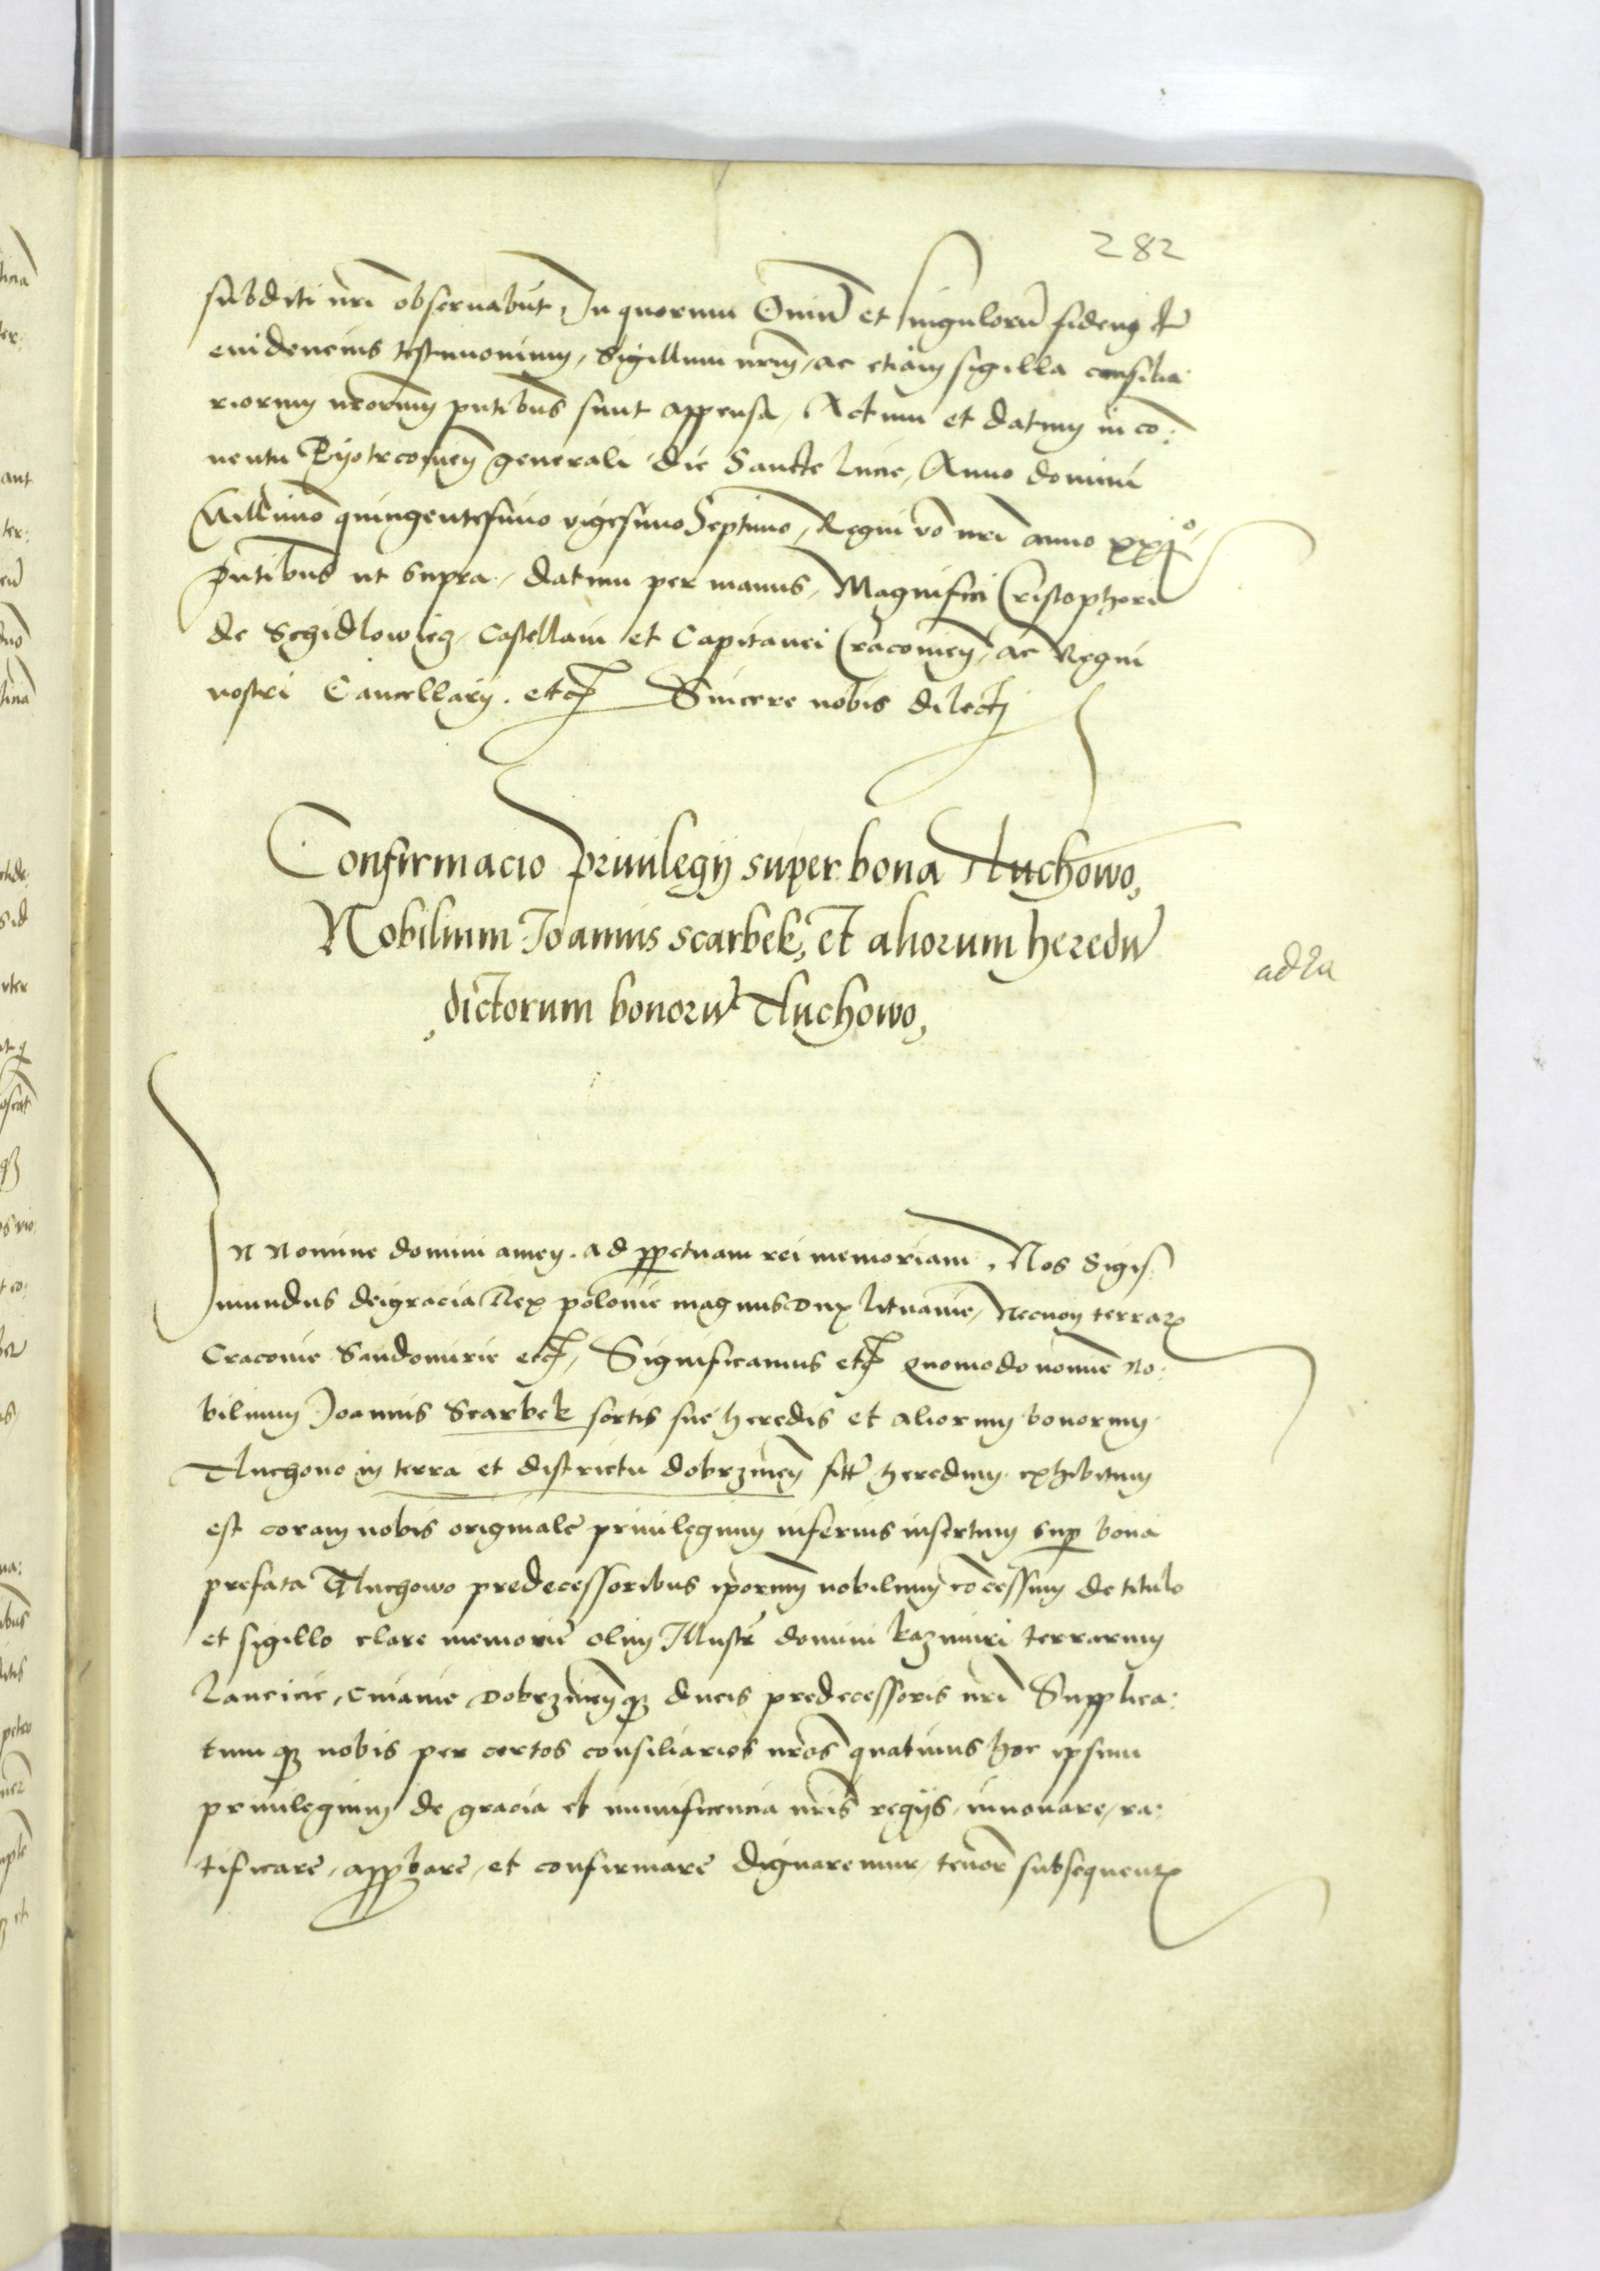 282
subditi nri obseruabut, In quorum Oniu et singuloru fidem et
euidencius testimonium, Sigillum nrm, ac etiam sigilla consilia:
riorum nrorum pntibus sunt appensa, Actum et datum in co:
uentu Pyotrcouien generali die Sancte Lucie, Anno domini
Millimo quingentesimo vigesimo Septimo, Regni vo nri anno xxjo
pntibus ut supra, datum per manus, Magnifici Cristophori
de Schidlowiecz, Castellani et Capitanei Cracouien, ac Regni
nostri Cancellarij. etc Sincere nobis dilecti
Confirmacio priuilegij super bona Tluchowo,
Nobilium Joannis scarbek, et aliorum heredu
dictorum bonoru Tluchowo,
In Nomine domini amen. ad ppetuam rei memoriam, Nos Sigis:
mundus dei gracia Rex polonie magnus Dux lituanie, Necnon terrar
Cracouie Sandomirie etc, Significamus etc Quomodo nomine No:
bilium Joannis Scarbek sortis sue heredis et aliorum bonorum
Tluchouo in terra et districtu dobrzinen sitt heredum exhibitum
est coram nobis originale priuilegium inferius insertum sup bona
prefata Tluchowo predecessoribus ipsorum nobilium cocessum de titulo
et sigillo clare memorie olim Illustr domini kazimiri terrarum
Lancicie, Cuiauie Dobrzinenq ducis predecessoris nri Supplica:
tumq nobis per certos consiliarios nros quatinus hoc ipsum
priuilegium de gracia et munificencia nris regijs, innouare, ra:
tificare, appbare, et confirmare dignaremur, tenor subsequent